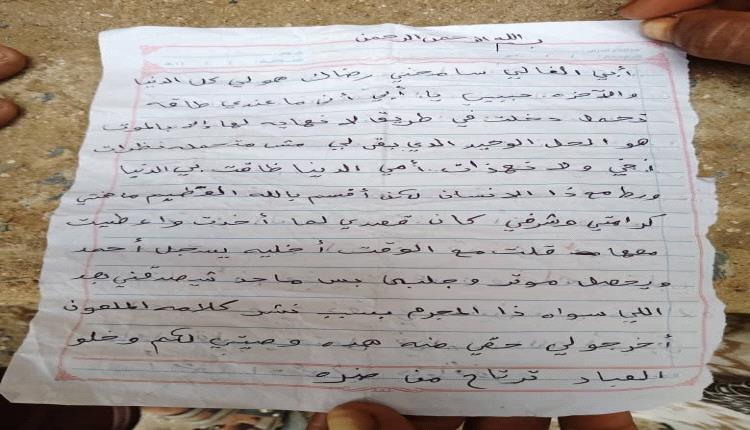 بسم الله الرحمن الرحمن
أبي الغالي سامحني رضاك هو لي كل الدنيا
والآخره حبيب يا أبي أن ما عندي طاقه
تحمل دخلت في طريق لا نهايه لها إلا بالموت
هو الحل الوحيد الذي بقى لي مش متحمله نظرات
أخي ولا نهذات أمي الدنيا ظاقت بي الدنيا
ورط مع ذا الانسان لكن أقسم بالله العظيم ما خنتي
كرامتي وشرفي كان قصدي لما أخذت واعطيت
معها قلت مع الوقت أخليه يسجل أحمد
ويحصل موتر وجلبي بس ماحد شيصدقني هد
اللي سواه ذا المجرم بسبب نشر كلامه الملعون
أخرجولي حقي منه هذه وصيتي لكم وخلو
العباد ترتاح من